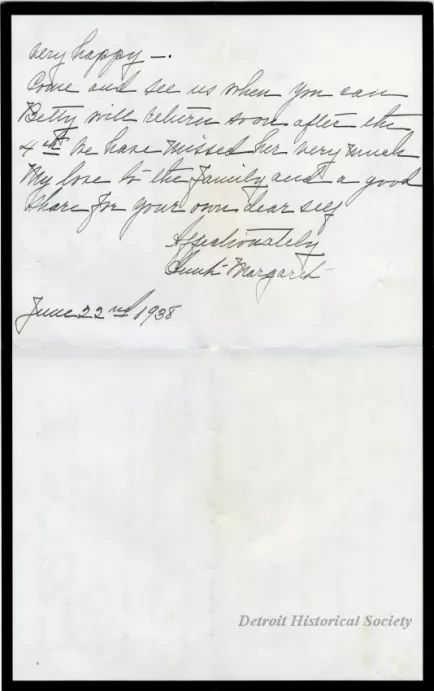 very happy —.
Come and see us when you can
Betty will return soon after the
4th We have missed her very much
My love to the Family and a good
share for your own dear self
Affectionately
Aunt Margaret
June 22nd 1938
Detroit Historical Society